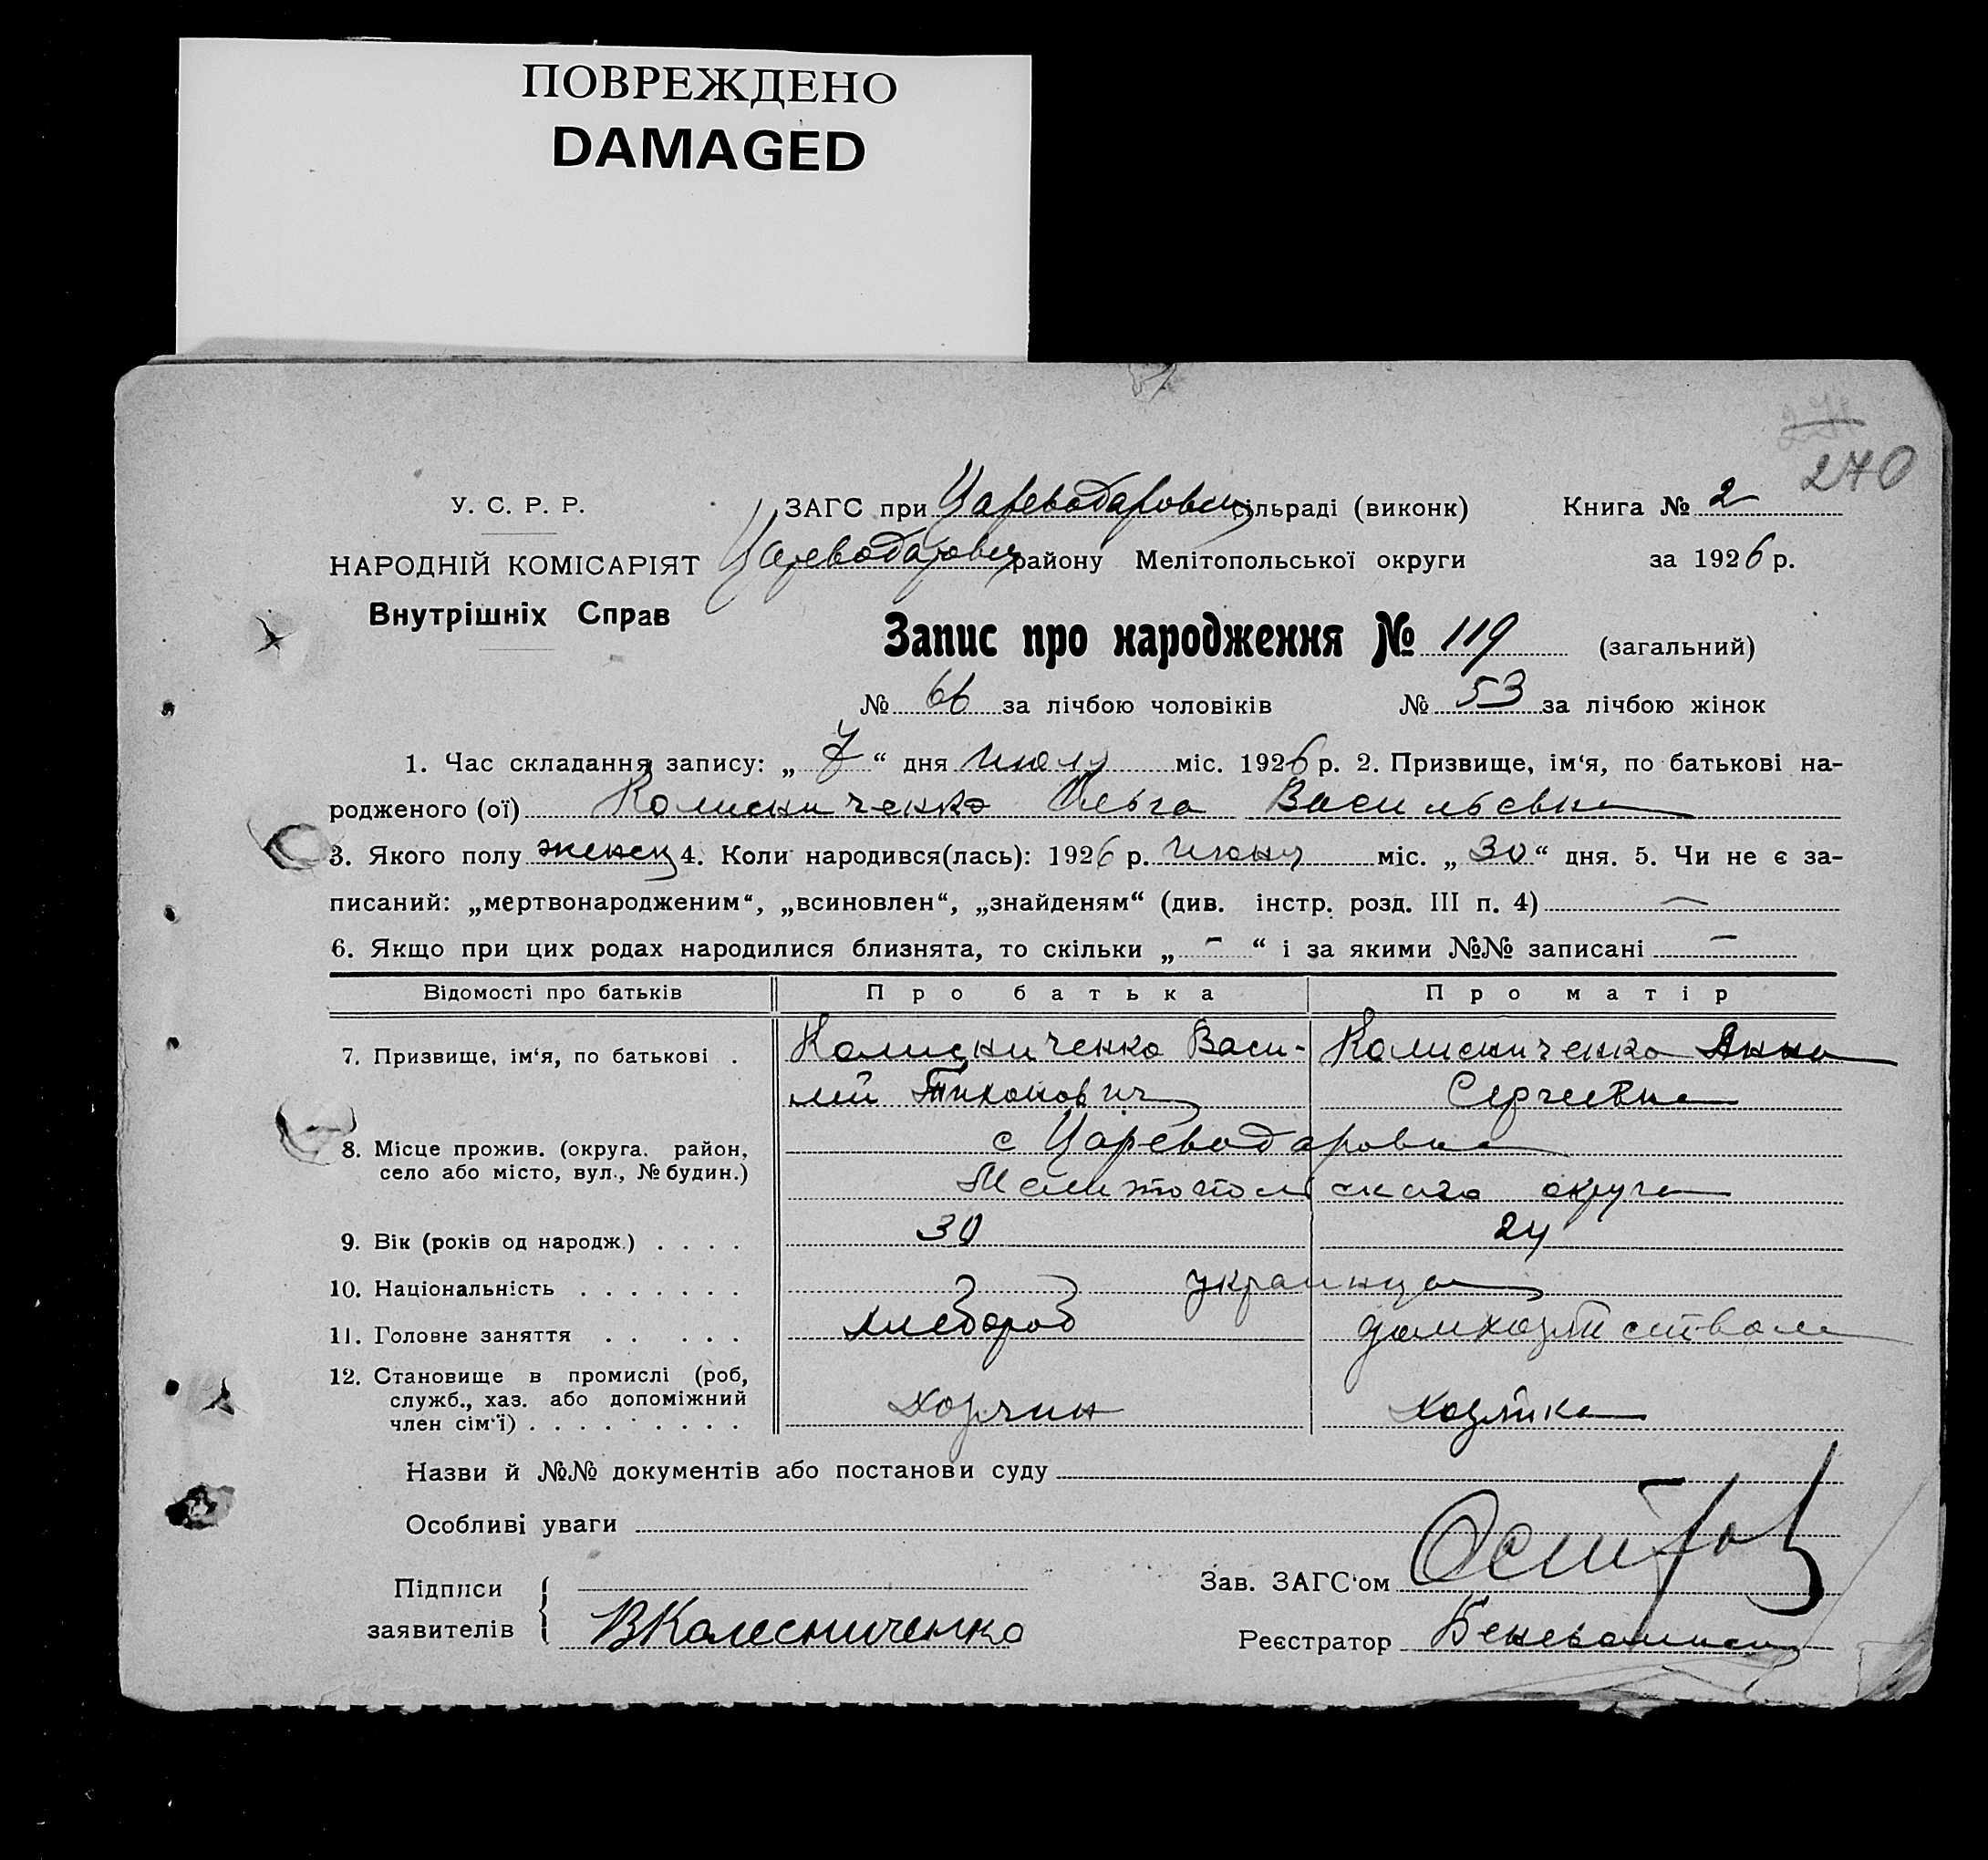 ПОВРЕЖДЕНО
DAMAGED
270
У. С. Р. Р.
НАРОДНІЙ КОМІСАРІЯТ
Внутрішніх Справ
ЗАГС при Цареводаровск сільраді (виконк) Книга № 2
Цареводаровск району Мелітопольської округи за 1926 р.
Запис про народження № 119 (загальний)
№ 66 за лічбою чоловіків № 53 за лічбою жінок
1. Час складання запису: „ 7 “ дня июля міс. 1926 р. 2. Призвище, ім‘я, по батькові на-
родженого (ої) Колисниченко Ольга Васильевна
3. Якого полу женск 4. Коли народився(лась): 1926 р. июня міс. „ 30 “ дня. 5. Чи не є за-
писаний: „мертвонародженим“, „всиновлен“, „знайденям“ (див. інстр. розд. III п. 4) —
6. Якщо при цих родах народилися близнята, то скільки „ - “ і за якими №№ записані —
Відомості про батьків Про батька Про матір
7. Призвище, ім‘я, по батькові . Колисниченко Васи- Колисниченко Анна
лий Тихонович Сергеевна
8. Місце прожив. (округа. район, с Цареводаровка
село або місто, вул., № будин.) Мелитопольского округа
9. Вік (років од народж.) . . . . 30 24
10. Національність . . . . . . . украинцы
11. Головне заняття . . . . . хлебороб
12. Становище в промислі (роб,
служб., хаз. або допоміжний
член сім‘ї) . . . . . . . . . хозяин хозяйка
Назви й №№ документів або постанови суду
Особливі уваги
Підписи
заявителів ВКолесниченко
Зав. ЗАГС‘ом
Реєстратор